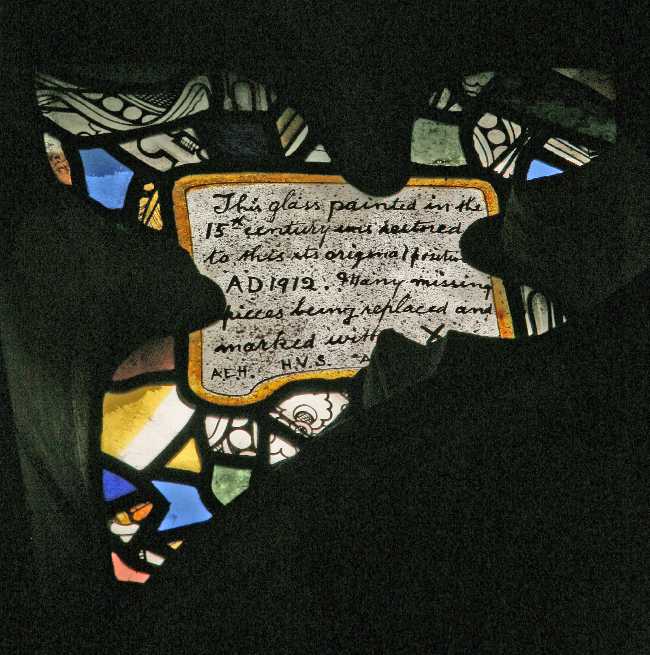 This glass painted in the
15th century was restored
to this its original
AD 1912. Many missing
pieces being replaced and
marked with X
A.E.H. H.V.S. A